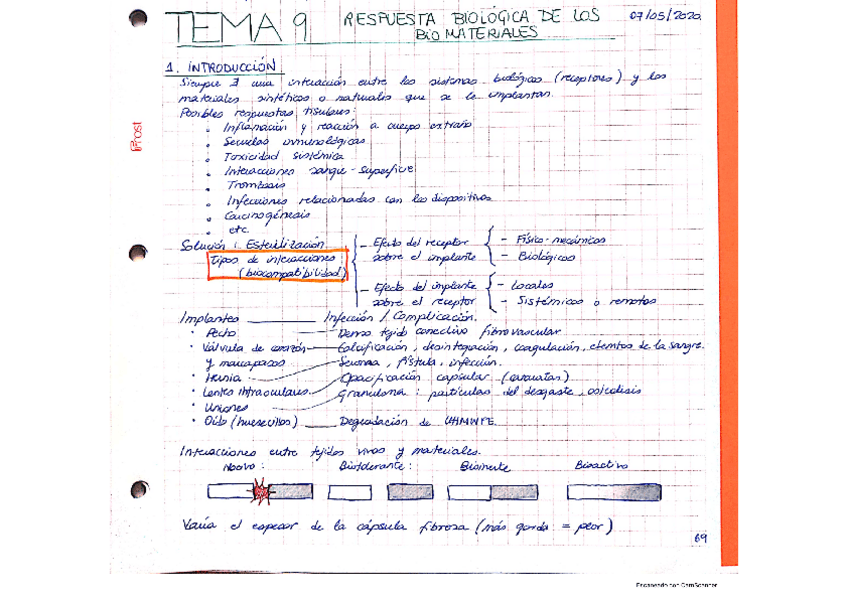 TEMA 9 RESPUESTA BIOLÓGICA DE LOS BIOMATERIALES 07/05/2020.
1. INTRODUCCIÓN
Siempre ∃ una interacción entre los sistemas biológicos (receptores) y los
materiales sintéticos o naturales que se le implantan.
Posibles respuestas tisulares:
• Inflamación y reacción a cuerpo extraño
• Secuelas inmunológicas
• Toxicidad sistémica
• Interacciones sangre-superficie
• Trombosis
• Infecciones relacionadas con los dispositivos
• Carcinogénesis
• etc.
Solución: Esterilización.
Tipos de interacciones (biocompatibilidad)
– Efecto del receptor sobre el implante
– Físico-mecánicos
– Biológicos
– Efecto del implante sobre el receptor
– Locales
– Sistémicos o remotos
Implantes Infección / Complicación.
• Pecho Denso tejido conectivo fibrovascular
• Válvula de corazón Calcificación, desintegración, coagulación, efectos de la sangre.
y marcapasos Seroma, fístula, infección.
• Hernia Opacificación capsular (cataratas)
• Lentes intraoculares Granuloma: partículas del desgaste, osteolisis
• Uniones
• Oído (huesecillos) Degradación de UHMWPE.
Interacciones entre tejidos vivos y materiales.
Nocivo: Biotolerante: Bioinerte Bioactivo
Varía el espesor de la cápsula fibrosa (más gorda = peor)
69
Prost
Escaneado con CamScanner